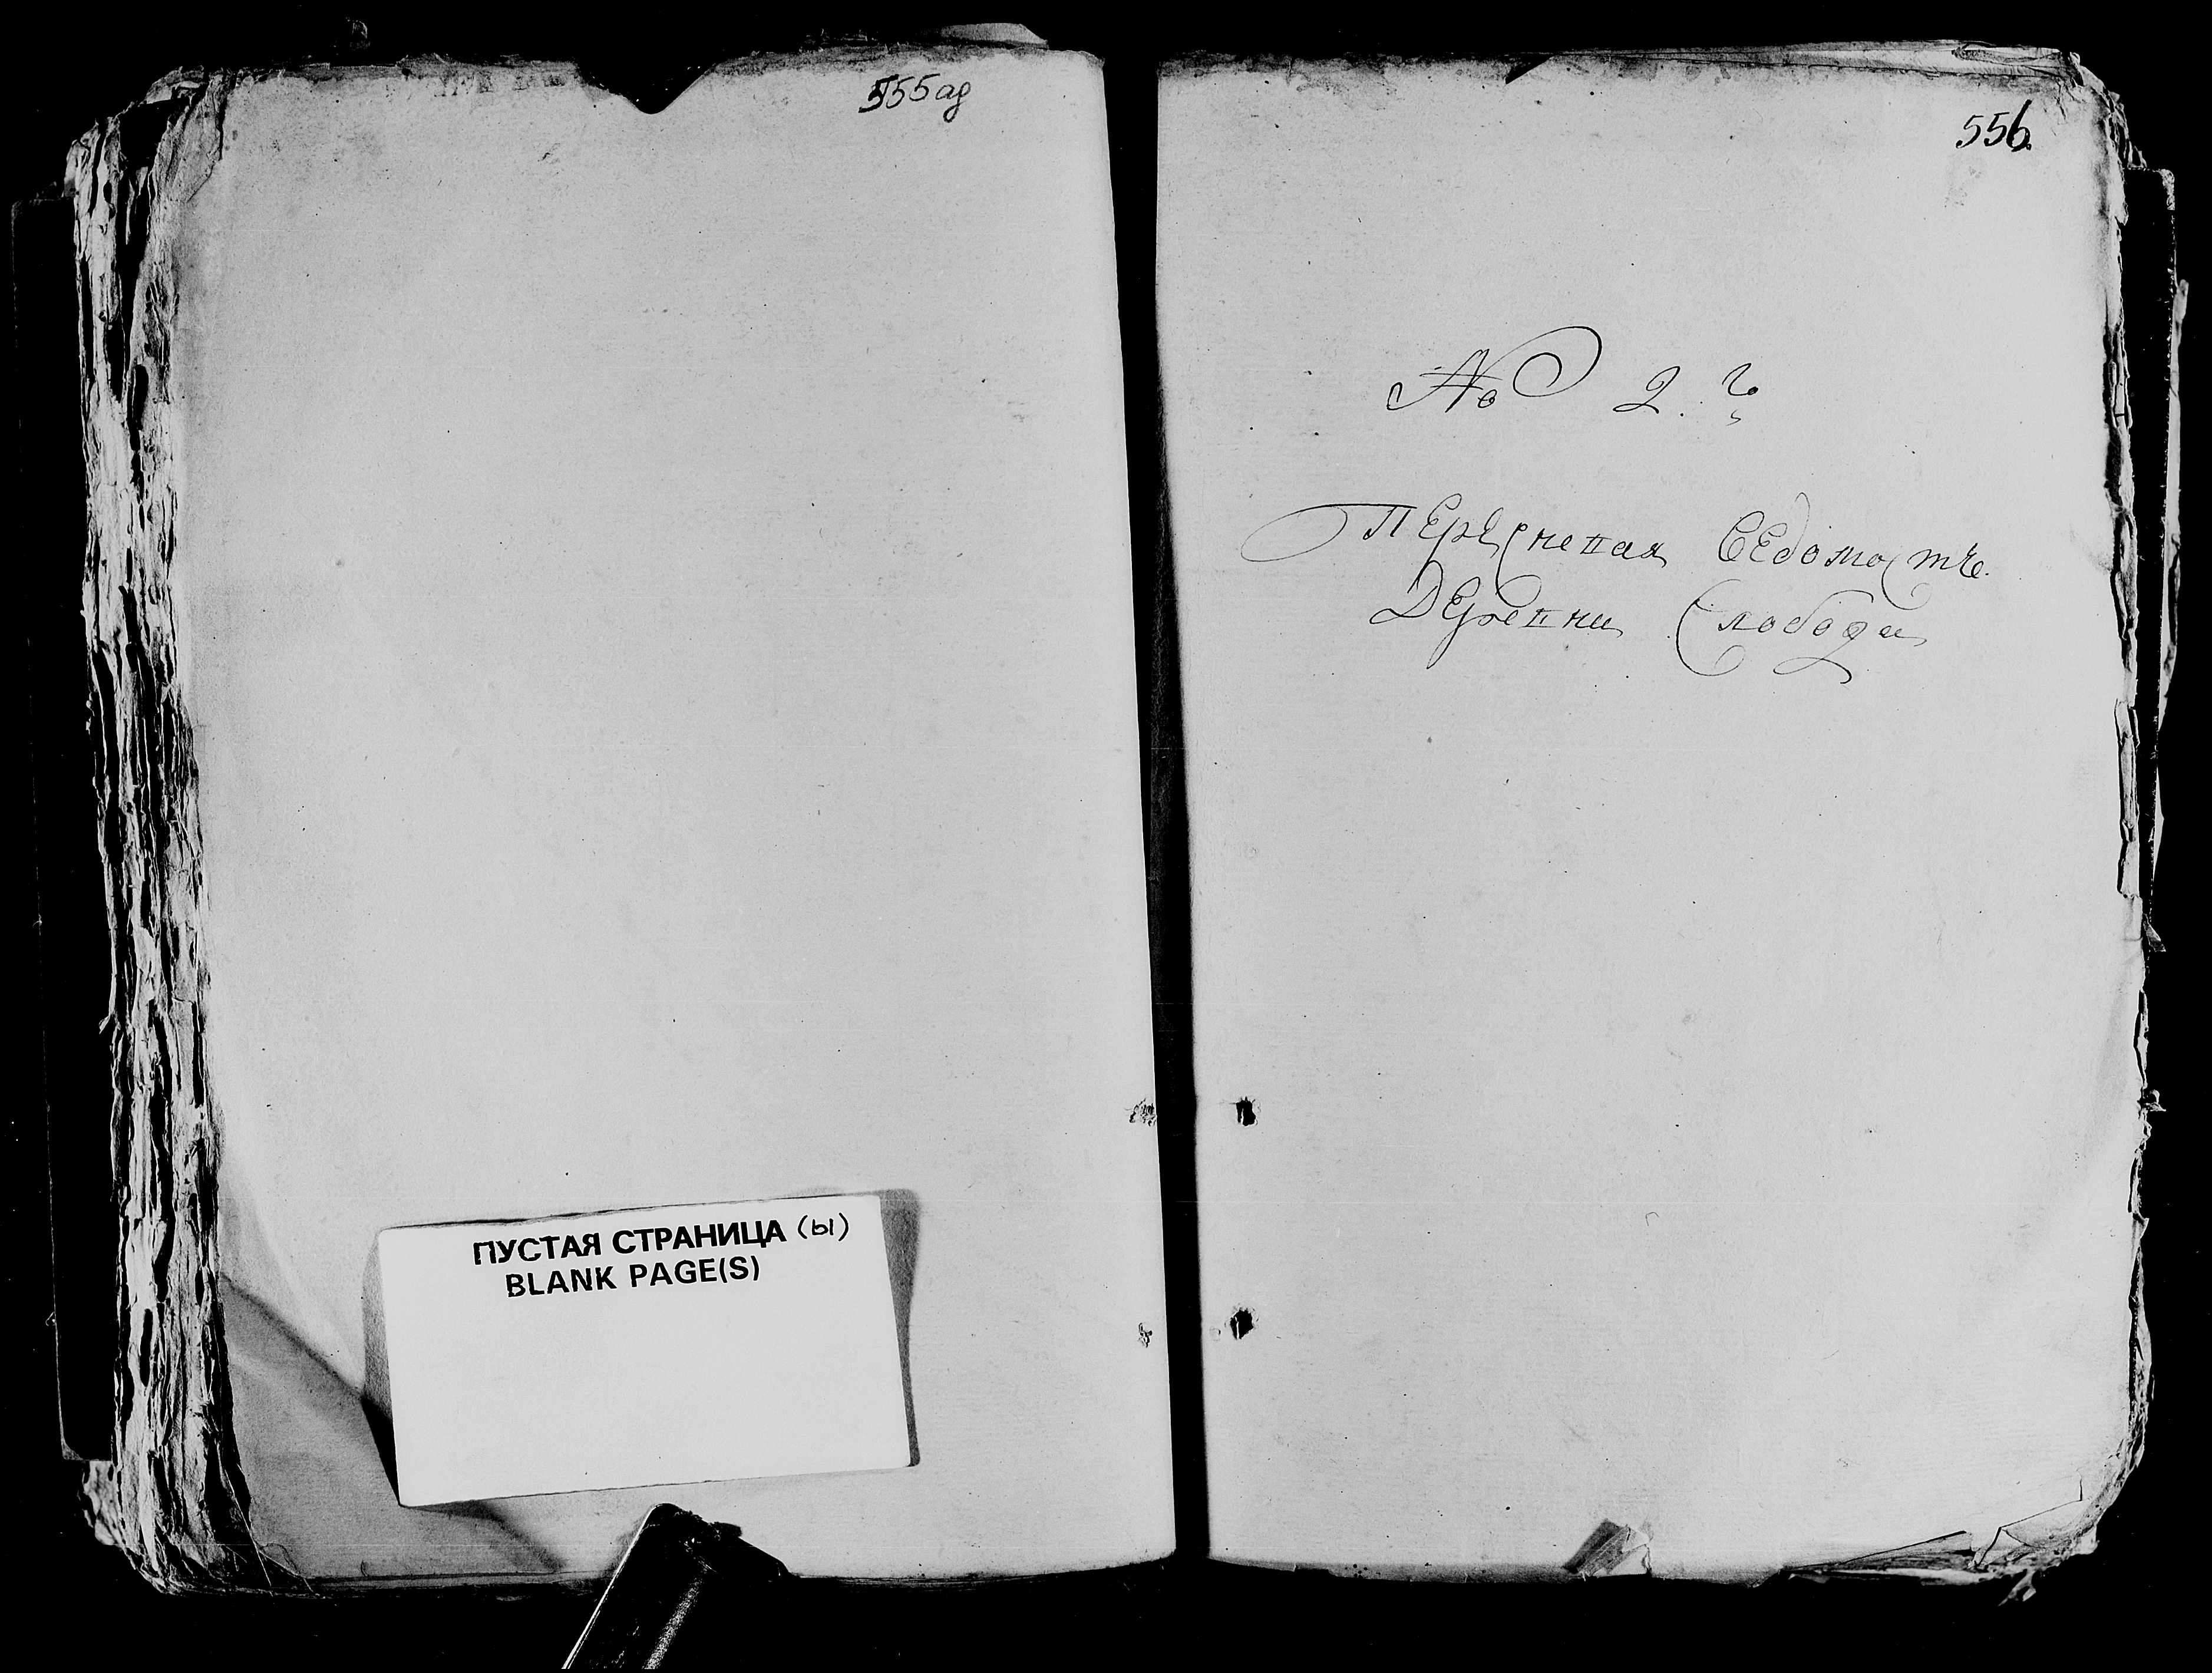 555 аg
ПУСТАЯ СТРАНИЦА (ы)
BLANK PAGE(S)
556.
№ 2. й
Перечневая ведомость
Деревни Слободи